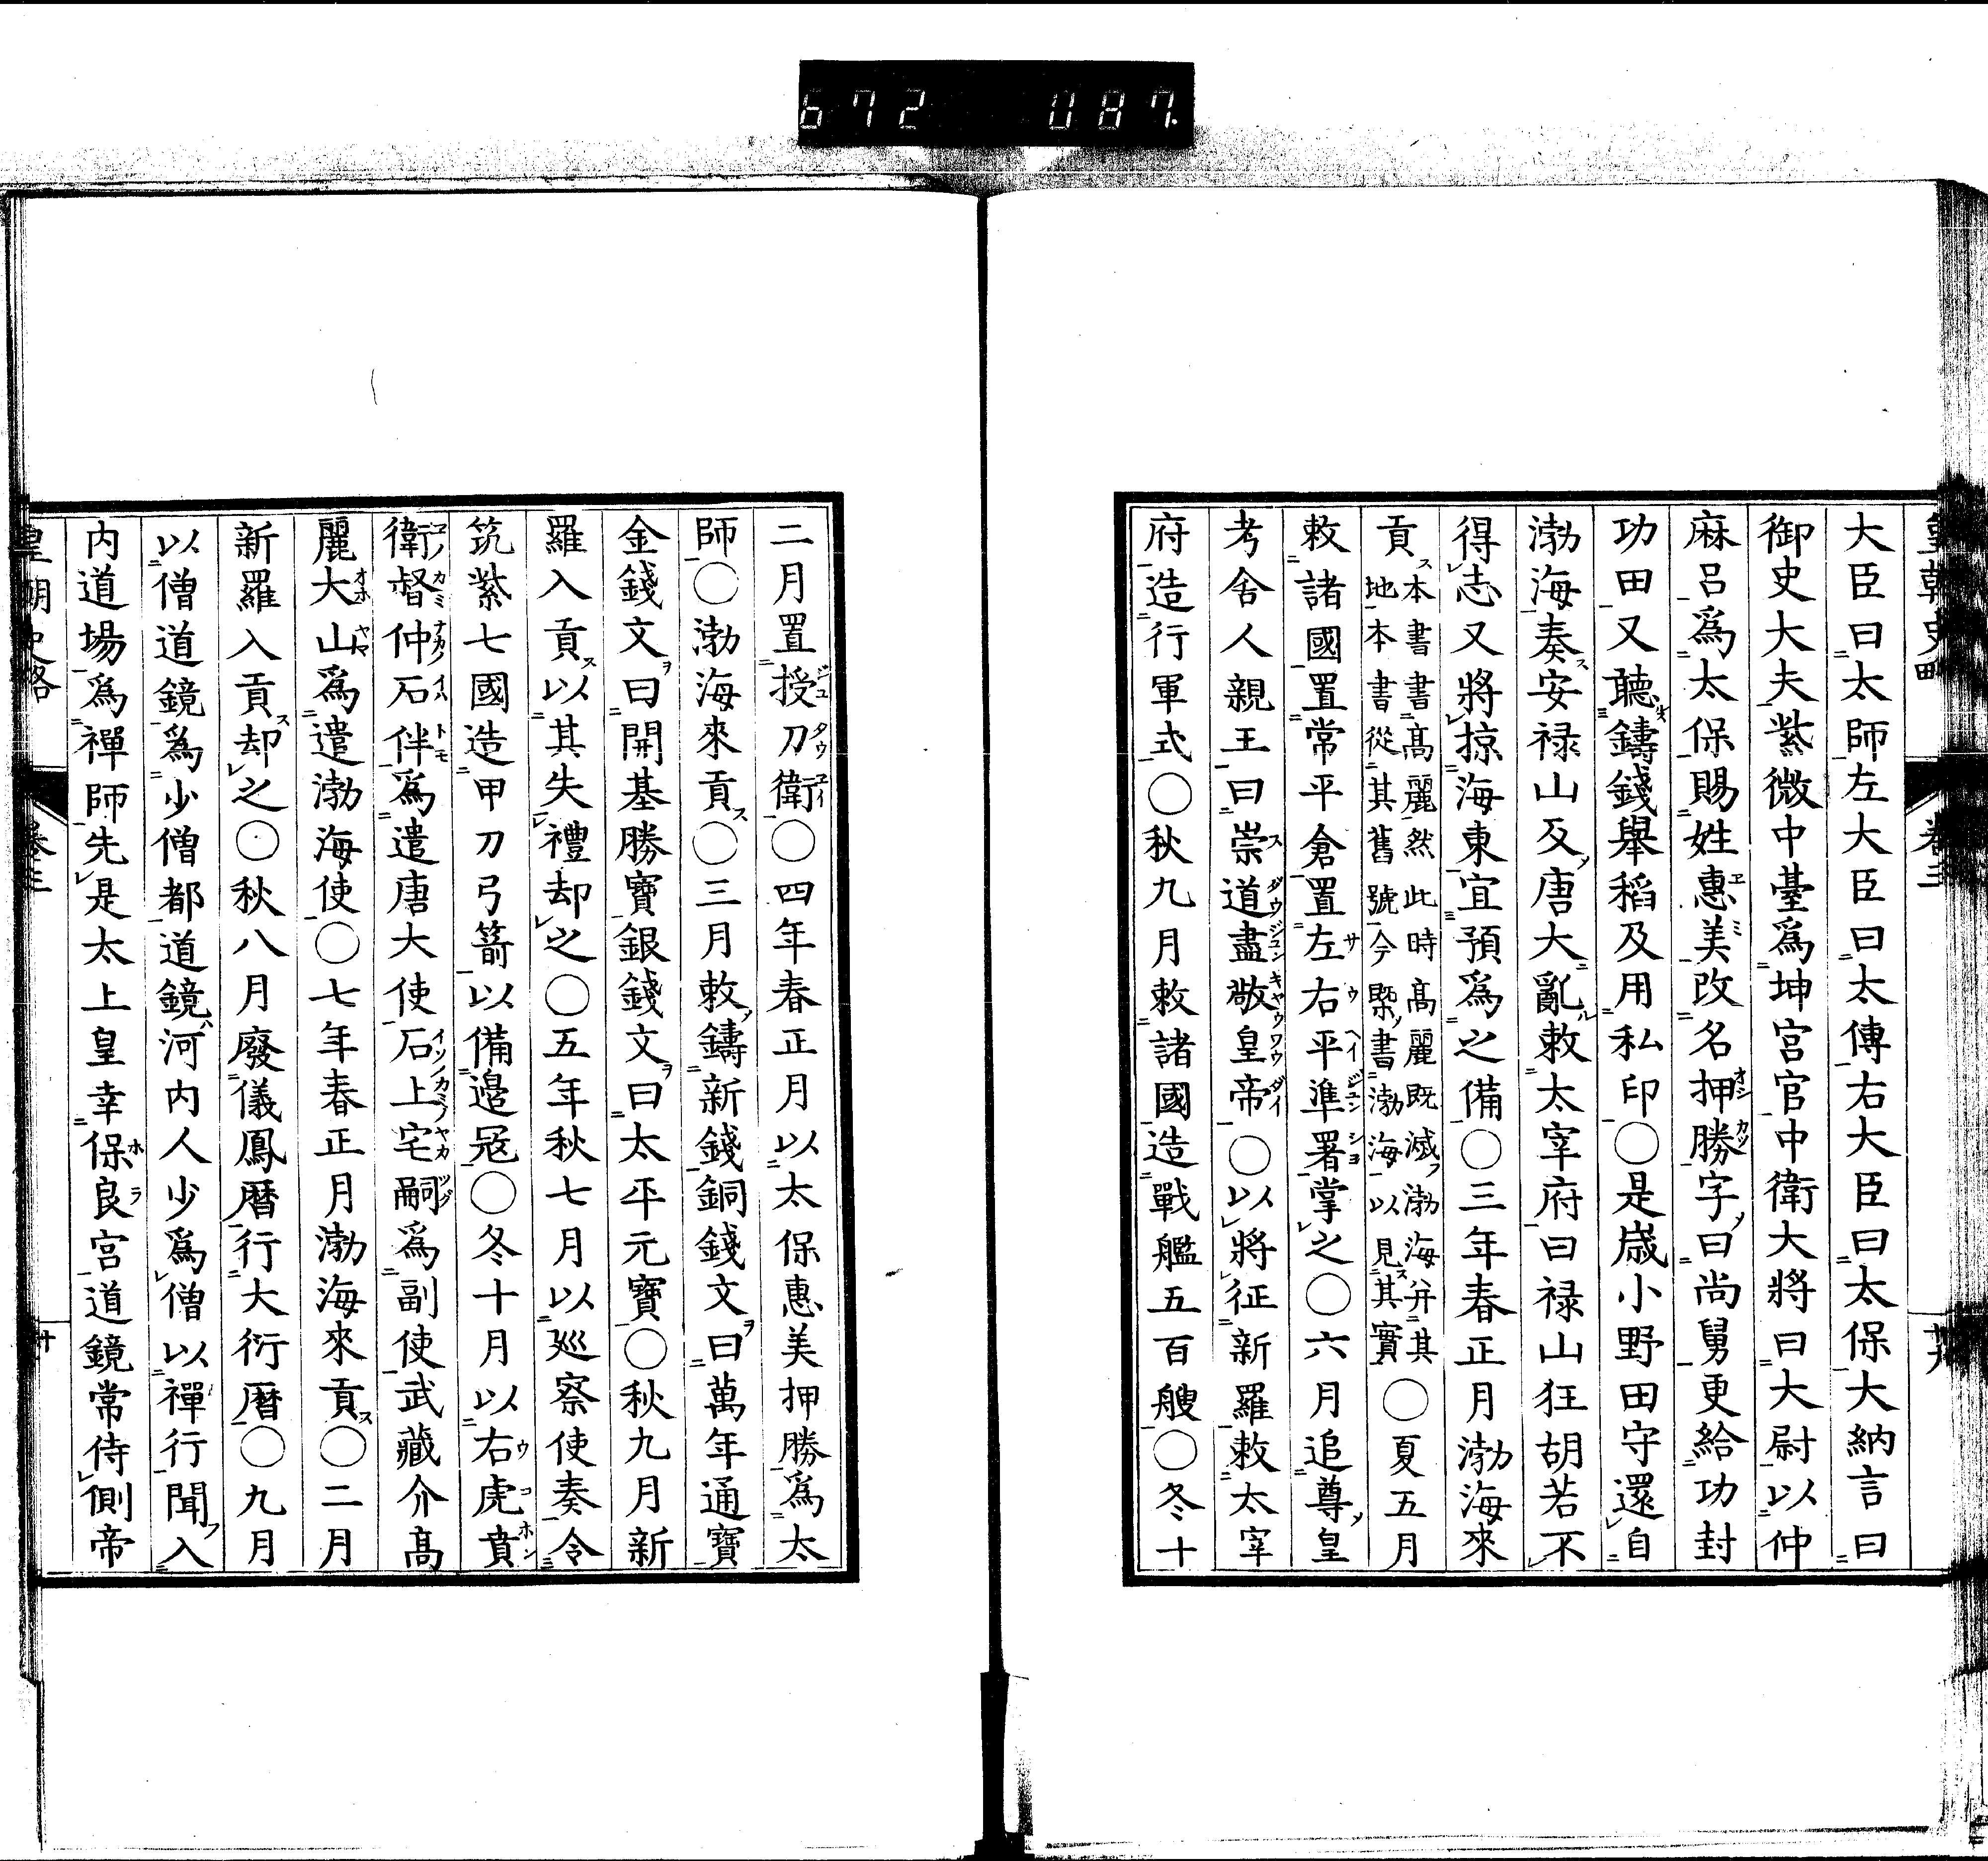 672 087
皇朝史略 卷三
大臣曰太師左大臣曰太傅右大臣曰太保大納言曰
御史大夫紫微中臺爲坤宮官中衛大將曰大尉以仲
麻呂爲太保賜姓惠美改名押勝字曰尚舅更給功封
功田又聽鑄錢舉稻及用私印○是歲小野田守還自
渤海奏安禄山反唐大亂敕太宰府曰禄山狂胡若不
得志又將掠海東宜預爲之備○三年春正月渤海來
貢本書書高麗然此時高麗既滅渤海并其
地本書從其舊號今槩書渤海以見其實○夏五月
敕諸國置常平倉置左右平準署掌之○六月追尊皇
考舍人親王曰崇道盡敬皇帝○以將征新羅敕太宰
府造行軍式○秋九月敕諸國造戰艦五百艘○冬十
二月置授刀衛○四年春正月以太保惠美押勝爲太
師○渤海來貢○三月敕鑄新錢銅錢文曰萬年通寶
金錢文曰開基勝寶銀錢文曰太平元寶○秋九月新
羅入貢以其失禮却之○五年秋七月以巡察使奏令
筑紫七國造甲刀弓箭以備邊冦○冬十月以右虎賁
衛督仲石伴爲遣唐大使石上宅嗣爲副使武藏介高
麗大山爲遣渤海使○七年春正月渤海來貢○二月
新羅入貢却之○秋八月廢儀鳳暦行大衍暦○九月
以僧道鏡爲少僧都道鏡河内人少爲僧以禪行聞入
内道場爲禪師先是太上皇幸保良宮道鏡常侍側帝
皇朝史略 卷三